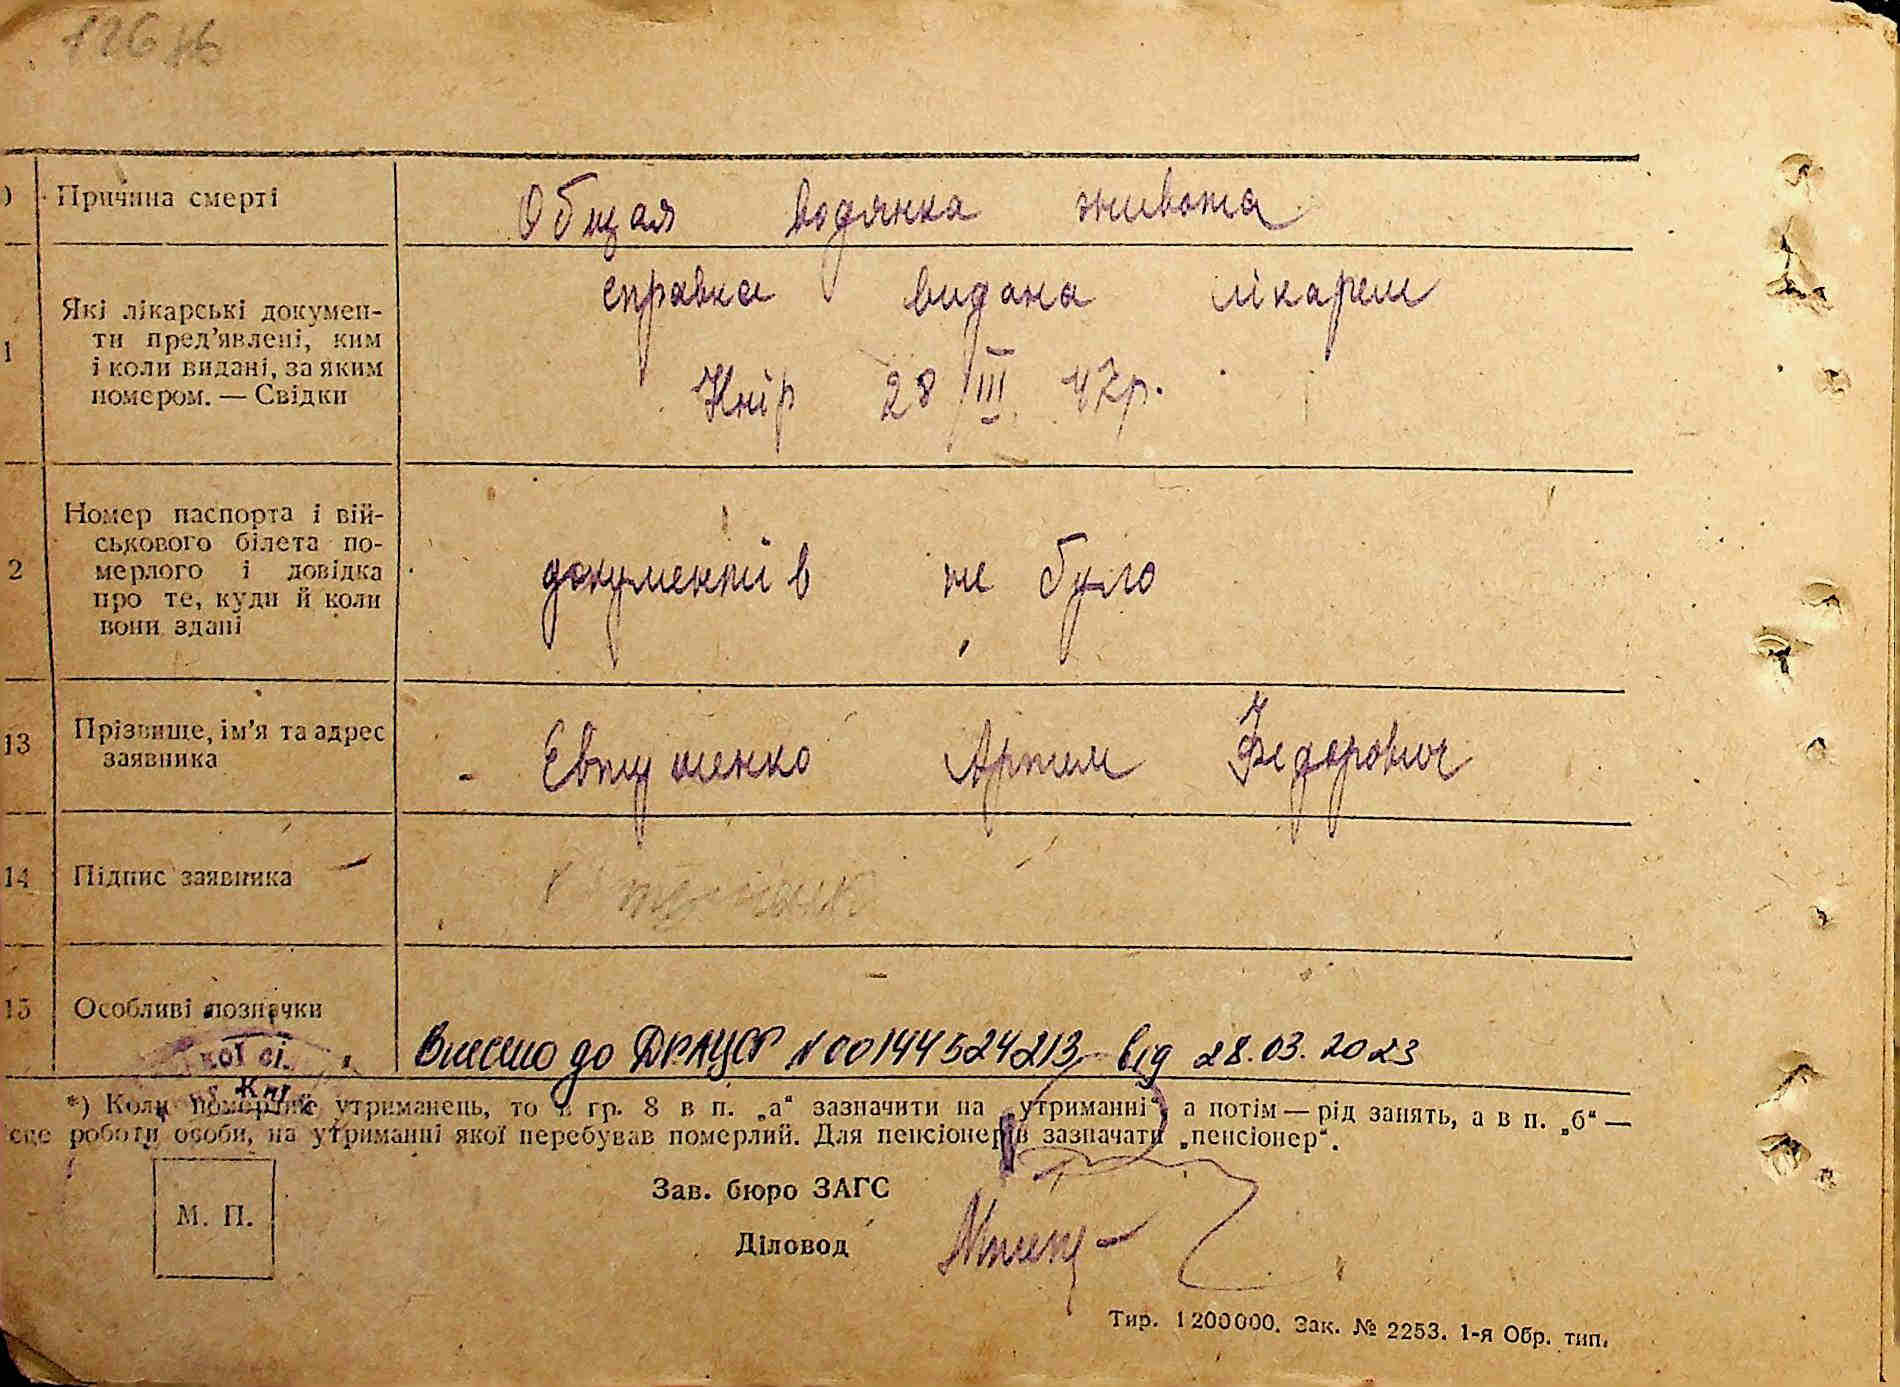 Причина смерті
Общая водянка живота
1
Які лікарські докумен-
ти пред'явлені, ким
і коли видані, за яким
номером. — Свідки
справка видана лікарем
Кнір 28/III 47р.
2
Номер паспорта і вій-
ськового білета по-
мерлого і довідка
про те, куди й коли
вони здані
документів не було
13
Прізвище, ім'я та адрес
заявника
Евтушенко Артем Федорович
14
Підпис заявника
15
Особливі позначки
Внесено до ДРАЦСГ №00144524213 від 28.03.2023
*) Коли померлий утриманець, то в гр. 8 в п. „а“ зазначити на „утриманні“, а потім — рід занять, а в п. „б“ —
сце роботи особи, на утриманні якої перебував померлий. Для пенсіонерів зазначати „пенсіонер“.
М. П.
Зав. бюро ЗАГС
Діловод
Тир. 1 200 000. Зак. № 2253. 1-я Обр. тип.